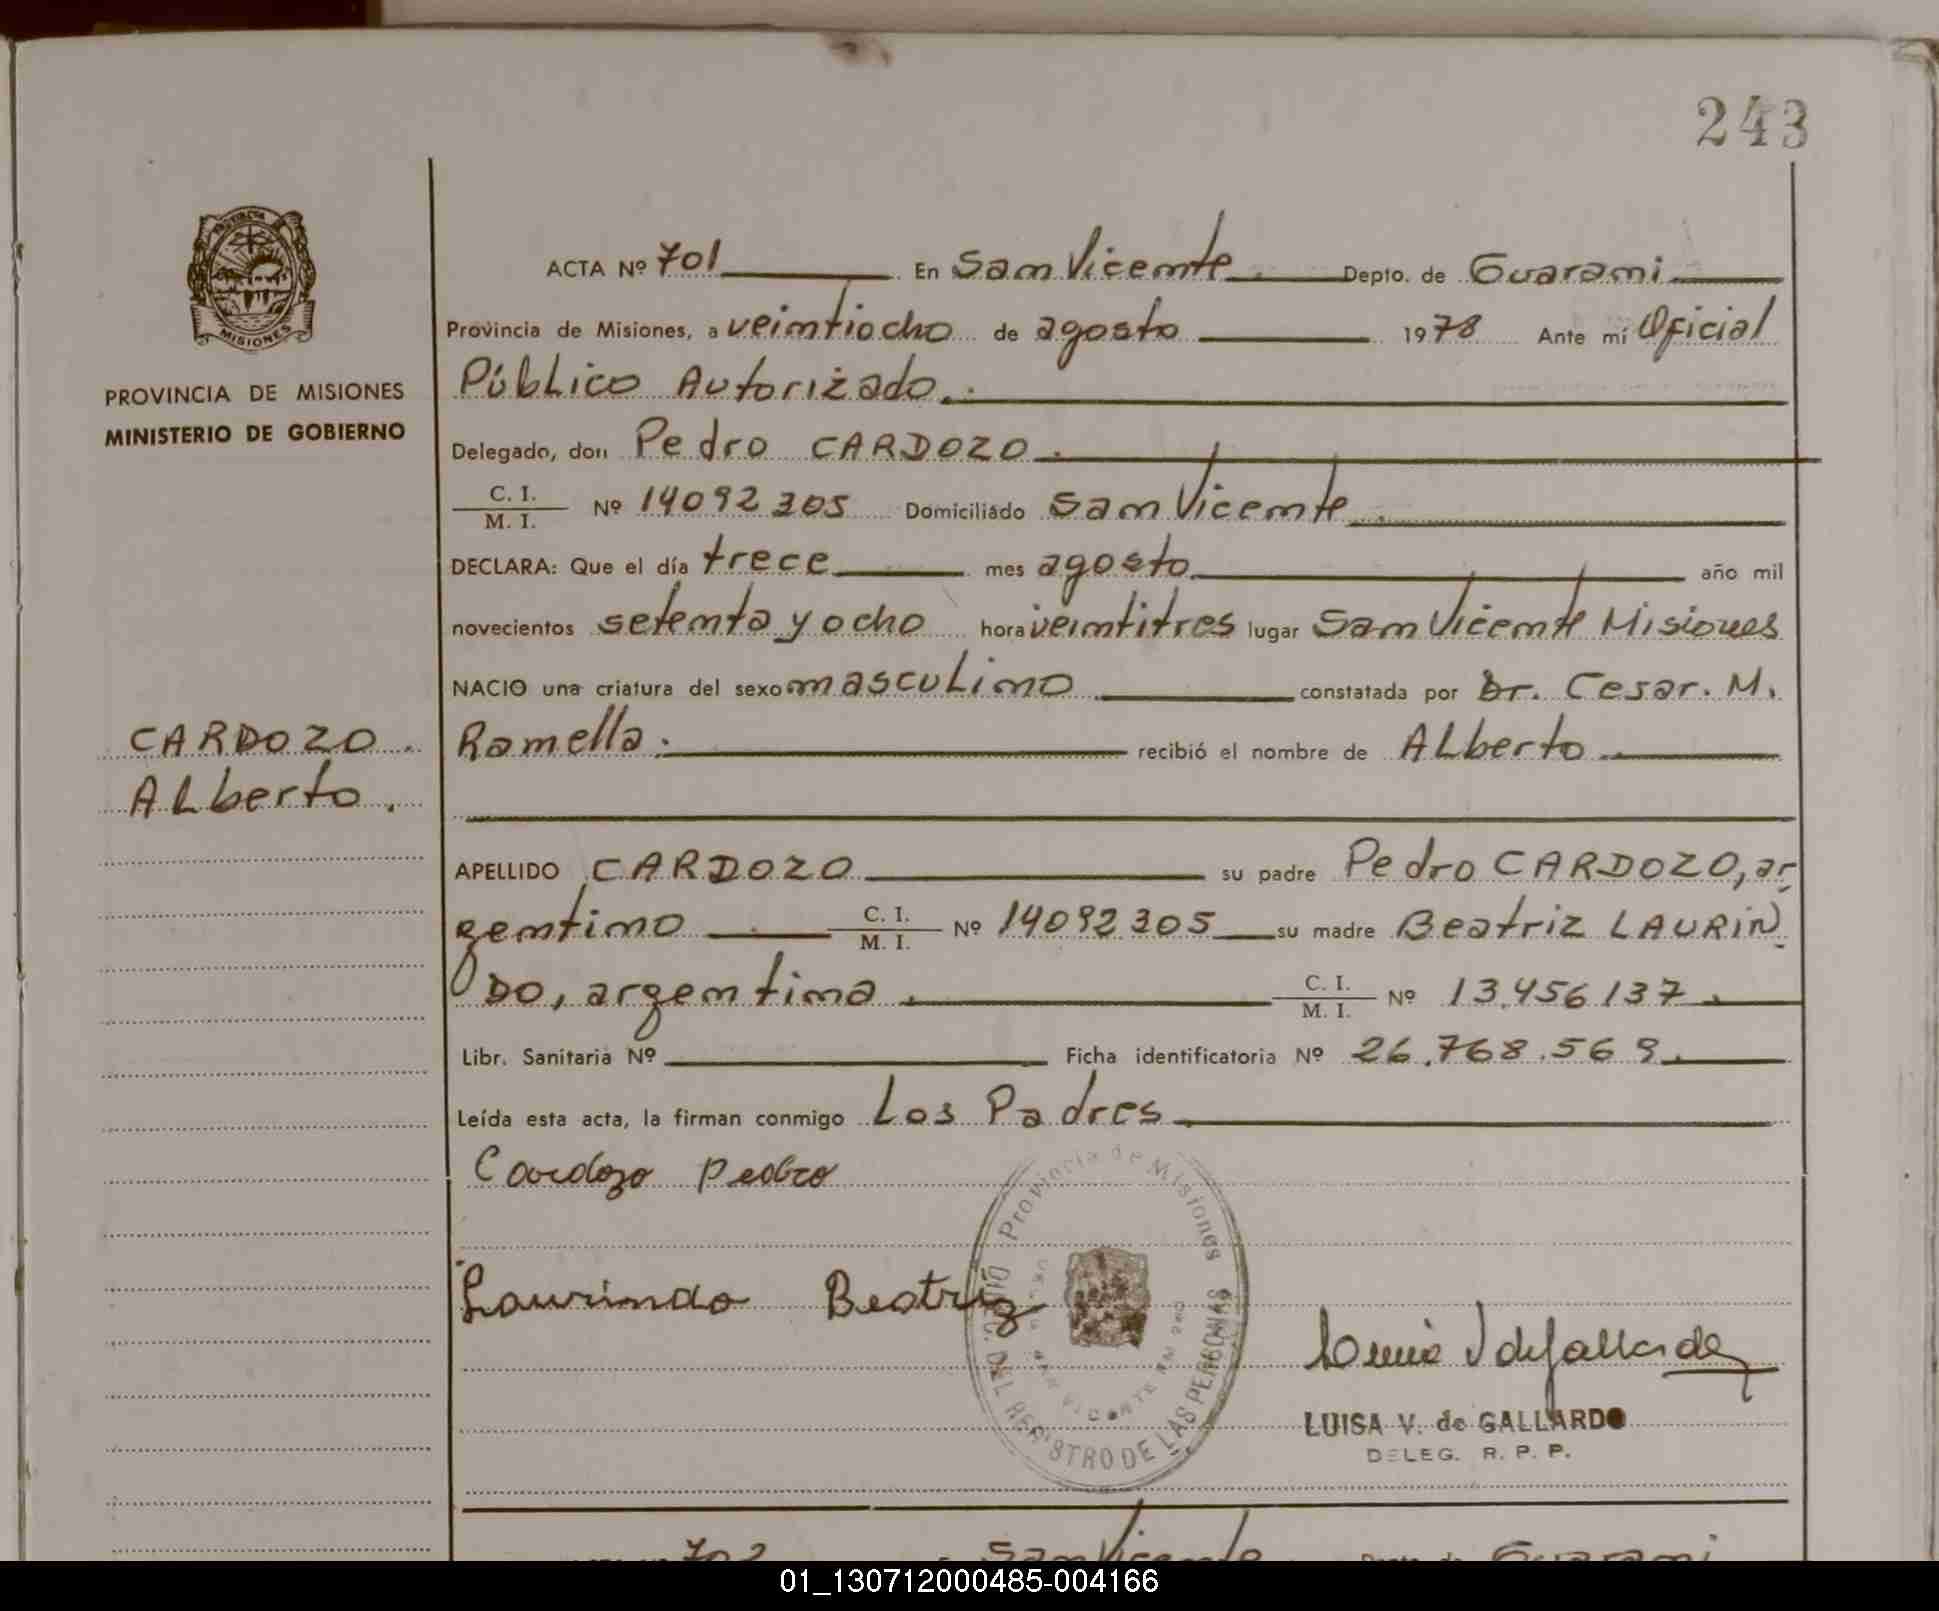 243
ACTA Nº 701 En San Vicente. Depto. de Guarani
Provincia de Misiones, a veintiocho de agosto 1978 Ante mí Oficial
Público Autorizado.
PROVINCIA DE MISIONES
MINISTERIO DE GOBIERNO
Delegado, don Pedro CARDOZO.
C. I.
M. I. Nº 14092305 Domiciliado San Vicente.
DECLARA: Que el día trece mes agosto año mil
novecientos setenta y ocho hora veintitres lugar San Vicente Misiones
NACIO una criatura del sexo masculino constatada por Dr. Cesar. M.
CARDOZO.
Alberto.
Ramella. recibió el nombre de Alberto.
APELLIDO CARDOZO su padre Pedro CARDOZO, ar
gentino C. I.
M. I. Nº 14092305 su madre Beatriz LAURIN
DO, argentina. C. I.
M. I. Nº 13.456137.
Libr. Sanitaria Nº Ficha identificatoria Nº 26.768.569.
Leída esta acta, la firman conmigo Los Padres
Cardozo Pedro
Provincia de Misiones
Laurindo Beatriz
DEL REGISTRO DE LAS PERSONAS
LUISA V. de GALLARDO
DELEG. R. P. P.
702 San Vicente Guarani
01_130712000485-004166